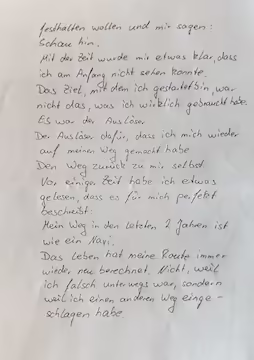 festhalten wollen und mir sagen:
Schau hin.
Mit der Zeit wurde mir etwas klar, dass
ich am Anfang nicht sehen konnte.
Das Ziel, mit dem ich gestartet bin, war
nicht das, was ich wirklich gebraucht habe.
Es war der Auslöser
Der Auslöser dafür, dass ich mich wieder
auf meinen Weg gemacht habe
Den Weg zurück zu mir selbst.
Vor einiger Zeit habe ich etwas
gelesen, dass es für mich perfekt
beschreibt:
Mein Weg in den letzten 2 Jahren ist
wie ein Navi.
Das Leben hat meine Route immer
wieder neu berechnet. Nicht, weil
ich falsch unterwegs war, sondern
weil ich einen anderen Weg einge-
schlagen habe